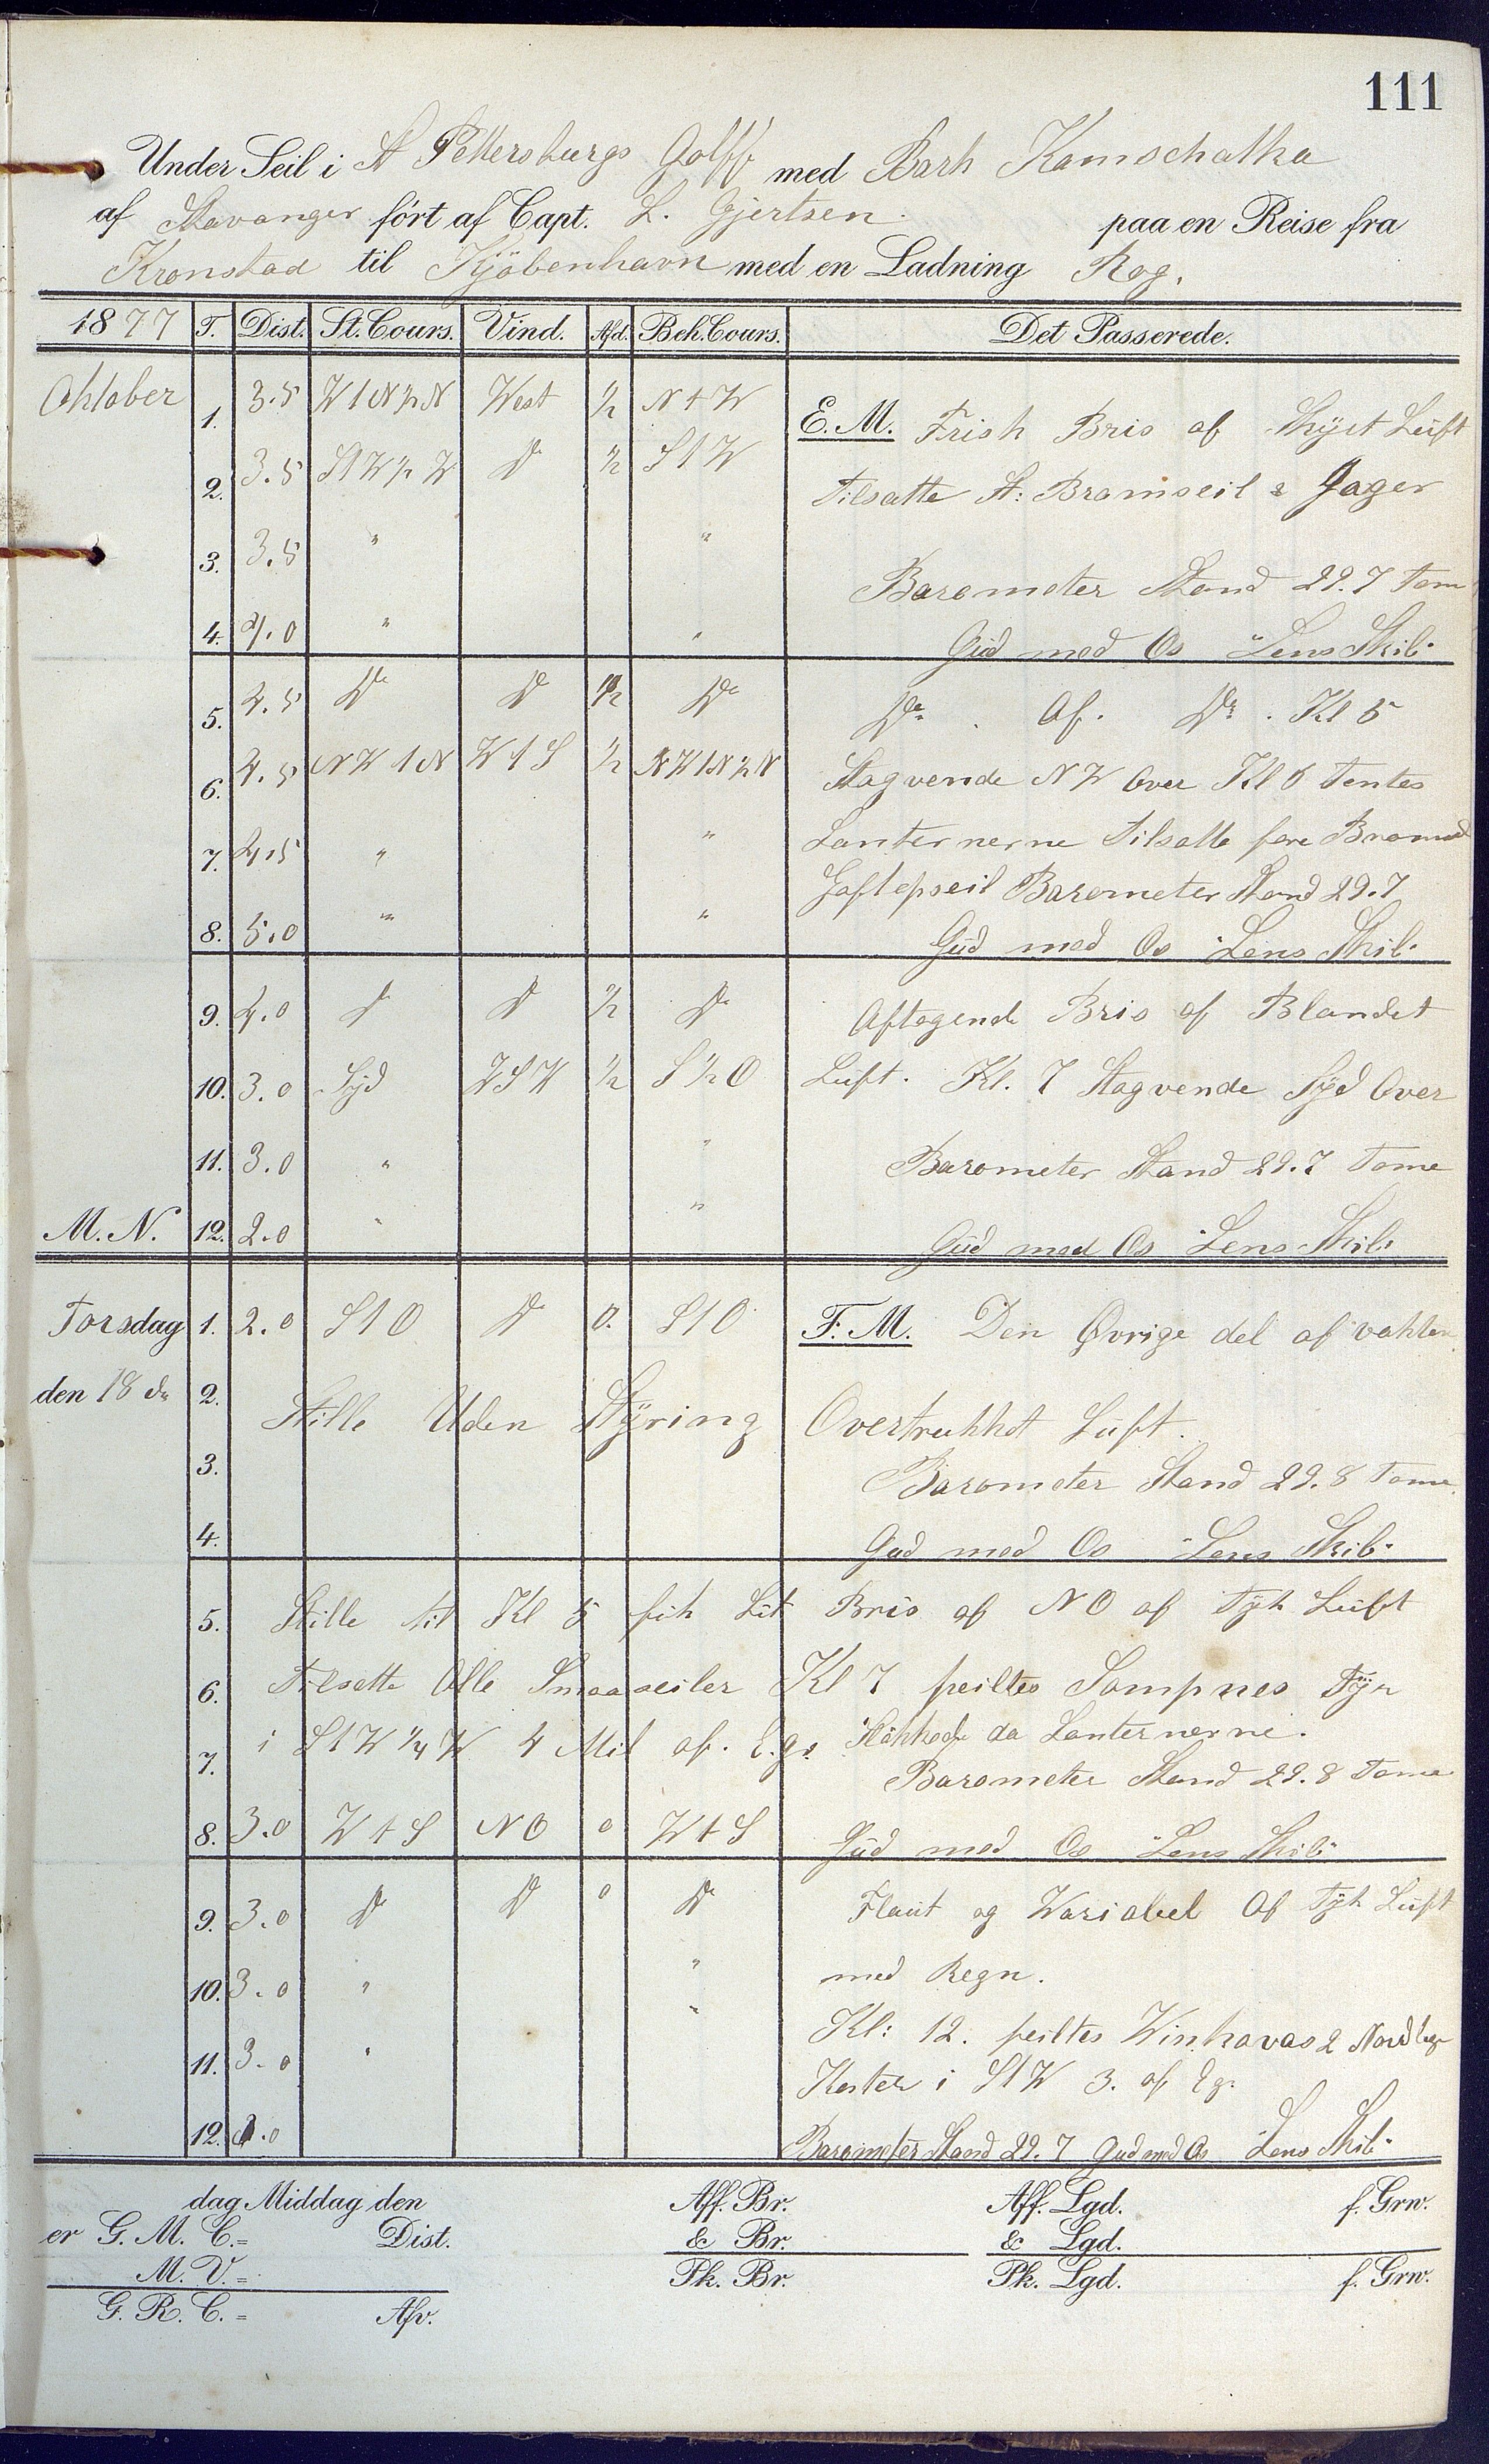 111
Under Seil i St Pettersburgs Golff med Bark Kamschatka
af Stavanger fört af Capt. L. Gjertsen. paa en Reise fra
Kronstad til Kjöbenhavn med en Ladning Rog.
1877 T. Dist. St. Cours. Vind. Afd. Beh. Cours. Det Passerede.
Oktober 1. 3.5 W t N ½ N West ½ N t W E. M. Frisk Bris af Skÿet Lüft
2. 3.5 S t W ½ W Do ½ S t W Tilsatte St: Bramseil & Jager
3. 3.5 " " Barometer Stand 29.7 Tom
4. 4.0 " " Güd med Os "Lens Skib"
5. 4.5 Do Do ½ Do Do . Af. Do . Kl 5
6. 4.5 NW t N W t S ½ NW t N ½ N Stagvende NW Over Kl 6 Tentes
7. 4.5 " " Lanternerne Tilsatte fore Bramseil
Gaftopseil Barometer Stand 29.7
8. 5.0 " " Güd med Os "Lens Skib"
9. 4.0 Do Do ½ Do Aftagende Bris af Blandet
10. 3.0 Sÿd WSW ½ S ½ O Lüft. Kl. 7 Stagvende Sÿd Over
11. 3.0 " " Barometer Stand 29.7 Tome
M. N. 12. 2.0 " " Güd med Os "Lens Skib"
Torsdag 1. 2.0 S t O Do 0. S t O F. M. Den Øvrige del af vakten
den 18 de 2. Stille Uden Stÿring Overtrukket Lüft.
3. Barometer Stand 29.8 Tome
4. Gud med Os "Lens Skib"
5. Stille til Kl 5 fik Lit Bris af NO af Tÿk Lüft
6. Tilsatte Alle Smaaseiler Kl 7 peiltes Sompnes Fÿr
7. i S t W ¼ W 4 Mil af. E.gs. Slökkede da Lanternerne.
Barometer Stand 29.8 Tome
8. 3.0 W t S NO 0 W t S Güd med Os "Lens Skib"
9. 3.0 Do Do 0 Do Flaüt og Wariabel Af Tÿk Lüft
10. 3.0 " " med Regn.
11. 3.0 " " Kl: 12. peiltes Winkovas 2 Nordlige
Koster i S t W 3. af Eg.
12. Barometer Stand 29.7 Gud med Os "Lens Skib"
dag Middag den Aff. Br. Aff. Lgd. f. Grw.
er G. M. C. = Dist. & Br. & Lgd.
M. V. = Pk. Br. Pk. Lgd. f. Grw.
G. R. C. = Afv.